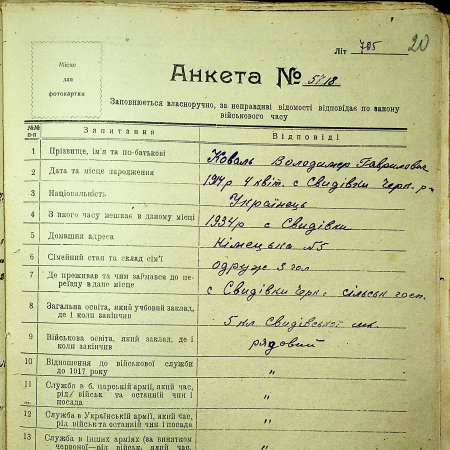 20
Літ 705
Місце
для
фотокартки
Анкета № 5718
Заповнюється власноручно, за неправдиві відомості відповідає по закону
військового часу
№№ п-п Запитання Відповіді
1 Прізвище, ім'я та по-батькові Коваль Володимир Гаврилович
2 Дата та місце народження 1914р 4 квіт. с Свидівки Черк. р-
3 Національність Українець
4 З якого часу мешкає в даному місці 1934р с Свидівки
5 Домашня адреса Німецька №5
6 Сімейний стан та склад сім'ї одруж 3 чол
7 Де проживав та чим займався до пе-
реїзду в дане місце с Свидівки Черк. сільськ госп.
8 Загальна освіта, який учбовий заклад,
де і коли закінчив 5 кл Свидівської шк.
9 Військова освіта, який заклад, де і
коли закінчив рядовий
10 Відношення до військової служби
до 1917 року "
11 Служба в б. царській армії, який час,
рід військ та останній чин і
посада "
12 Служба в Українській армії, який час,
рід військ та останній чин і посада "
13 Служба в інших арміях (за винятком
червоної—рід військ, який час, "